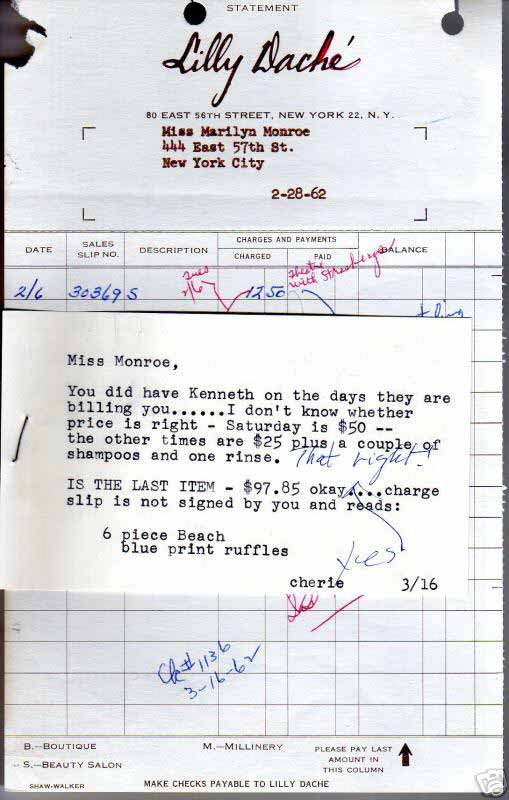 STATEMENT
Lilly Daché
80 EAST 56TH STREET, NEW YORK 22, N. Y.
Miss Marilyn Monroe
444 East 57th St.
New York City
2-28-62
DATE
SALES SLIP NO.
DESCRIPTION
CHARGES AND PAYMENTS
CHARGED
PAID
BALANCE
Tues 2/6
theatre with Strasbergs
2/6 30369 S 12 50
Miss Monroe,
You did have Kenneth on the days they are
billing you......I don't know whether
price is right - Saturday is $50 --
the other times are $25 plus a couple of
shampoos and one rinse. That right?
IS THE LAST ITEM - $97.85 okay....charge
slip is not signed by you and reads:
6 piece Beach
blue print ruffles
yes
cherie 3/16
Ck# 1136
3-16-62
B.—BOUTIQUE M.—MILLINERY
S.—BEAUTY SALON
PLEASE PAY LAST
AMOUNT IN
THIS COLUMN
SHAW-WALKER
MAKE CHECKS PAYABLE TO LILLY DACHE